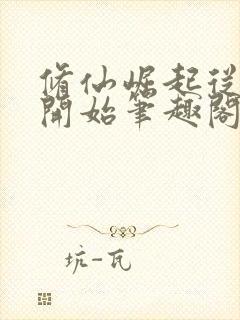 脩仙崛起從
開始筆趣閣
坑-瓦